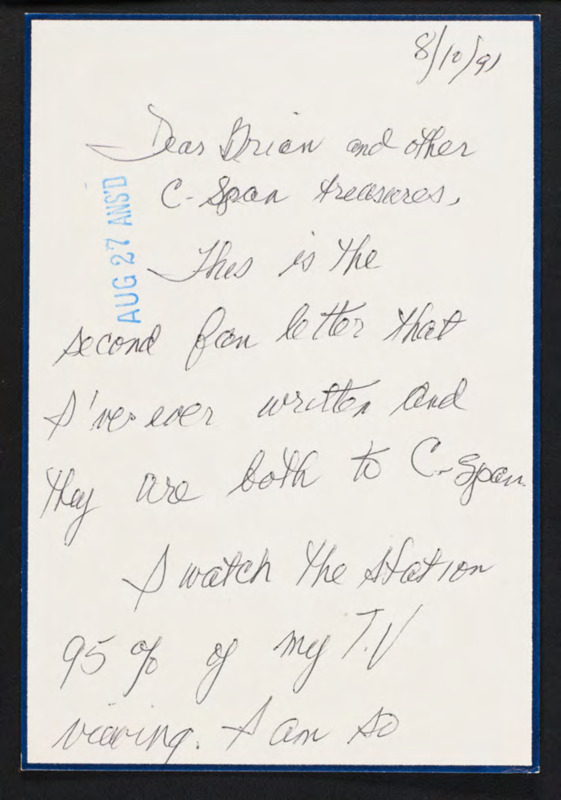 8/10/91
Dear Brian and other
C-Span treasures,
AUG 27 ANS'D
This is the
second fan letter that
I've ever written and
they are both to C-Span.
I watch the station
95% of my T.V
viewing. I am so